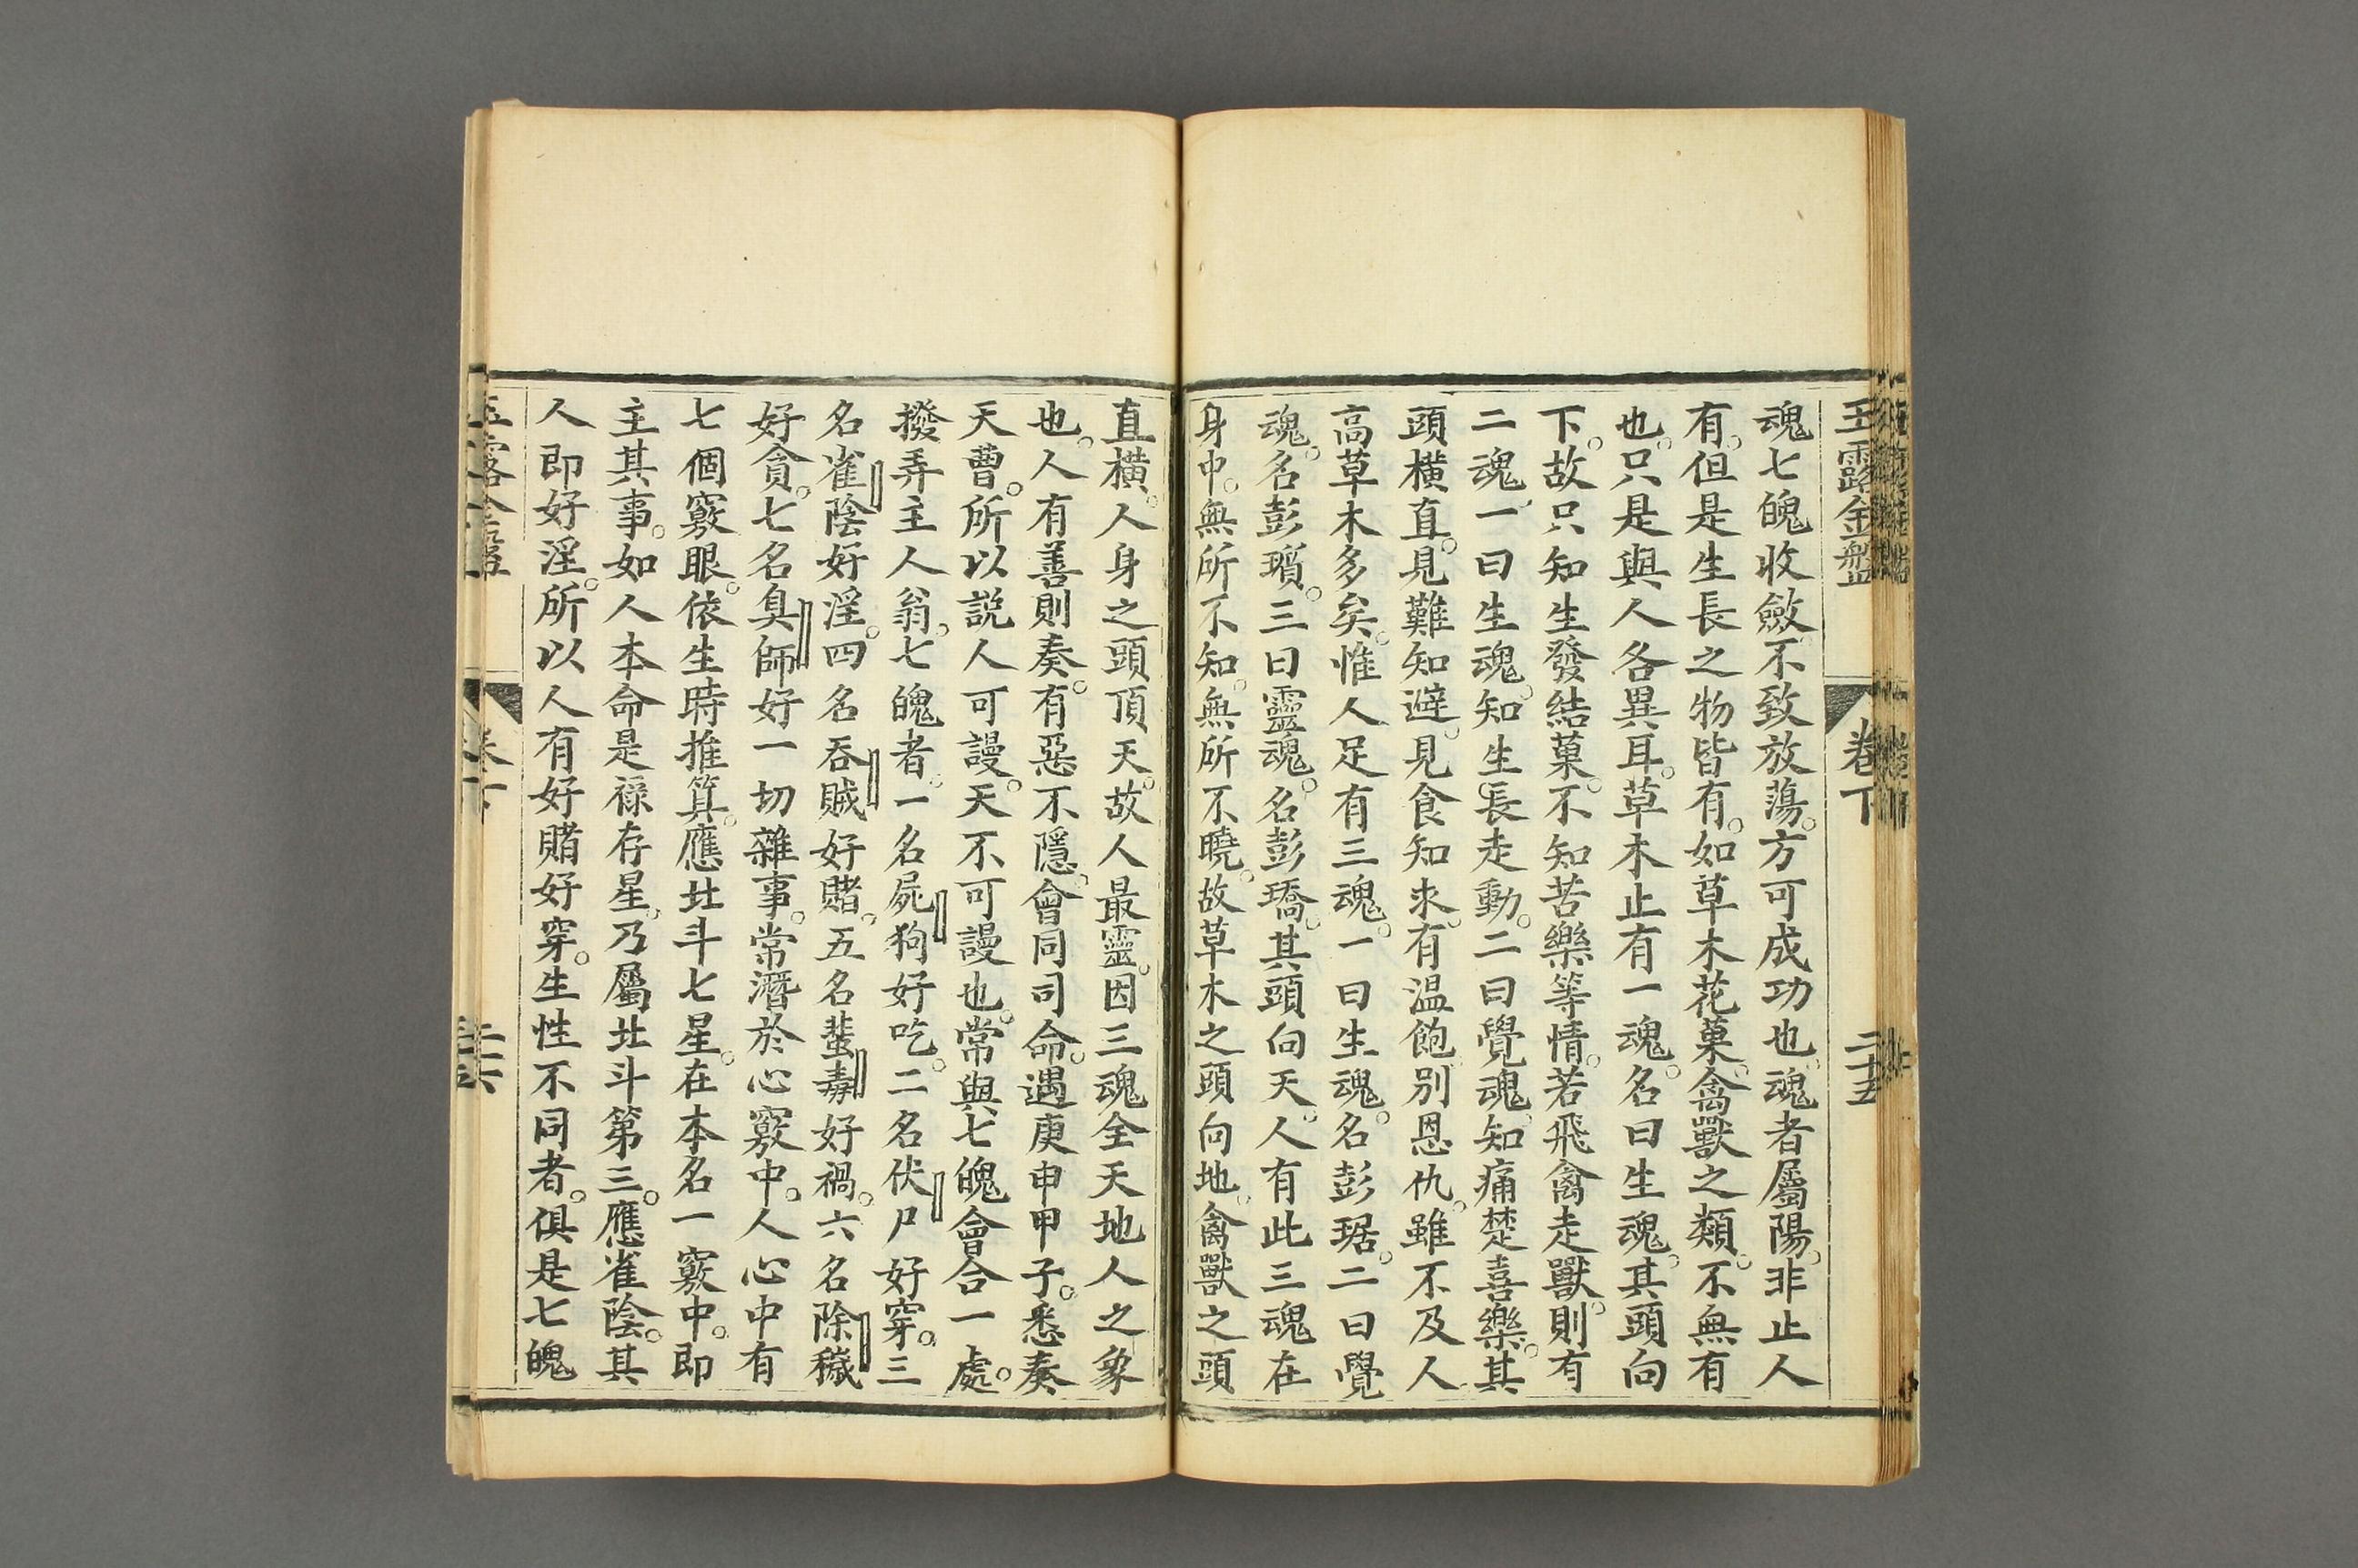 玉露金盤 卷下 二十五
魂七魄收斂不致放蕩。方可成功也。魂者屬陽。非止人
有。但是生長之物皆有。如草木花菓。禽獸之類。不無有
也。只是與人各異耳。草木止有一魂。名曰生魂。其頭向
下。故只知生發結菓。不知苦樂等情。若飛禽走獸。則有
二魂。一曰生魂。知生長走動。二曰覺魂。知痛楚喜樂。其
頭橫直。見難知避。見食知求。有温飽別恩仇。雖不及人
高草木多矣。惟人足有三魂。一曰生魂。名彭琚。二曰覺
魂。名彭瓆。三曰靈魂。名彭璚。其頭向天。人有此三魂在
身中。無所不知。無所不曉。故草木之頭向地。禽獸之頭
直橫。人身之頭頂天。故人最靈。因三魂全天地人之象
也。人有善則奏。有惡不隱。會同司命。遇庚申甲子。悉奏
天曹。所以説人可謾。天不可謾也。常與七魄會合一處。
撥弄主人翁。七魄者。一名屍狗好吃。二名伏尸好穿。三
名雀陰好淫。四名吞賊好賭。五名蜚毒好禍。六名除穢
好貪。七名臭師好一切雜事。常潛於心竅中。人心中有
七個竅眼。依生時推算。應北斗七星。在本名一竅中。即
主其事。如人本命是祿存星。乃屬北斗第三。應雀陰。其
人即好淫。所以人有好賭好穿。生性不同者。俱是七魄
卷下 二十六